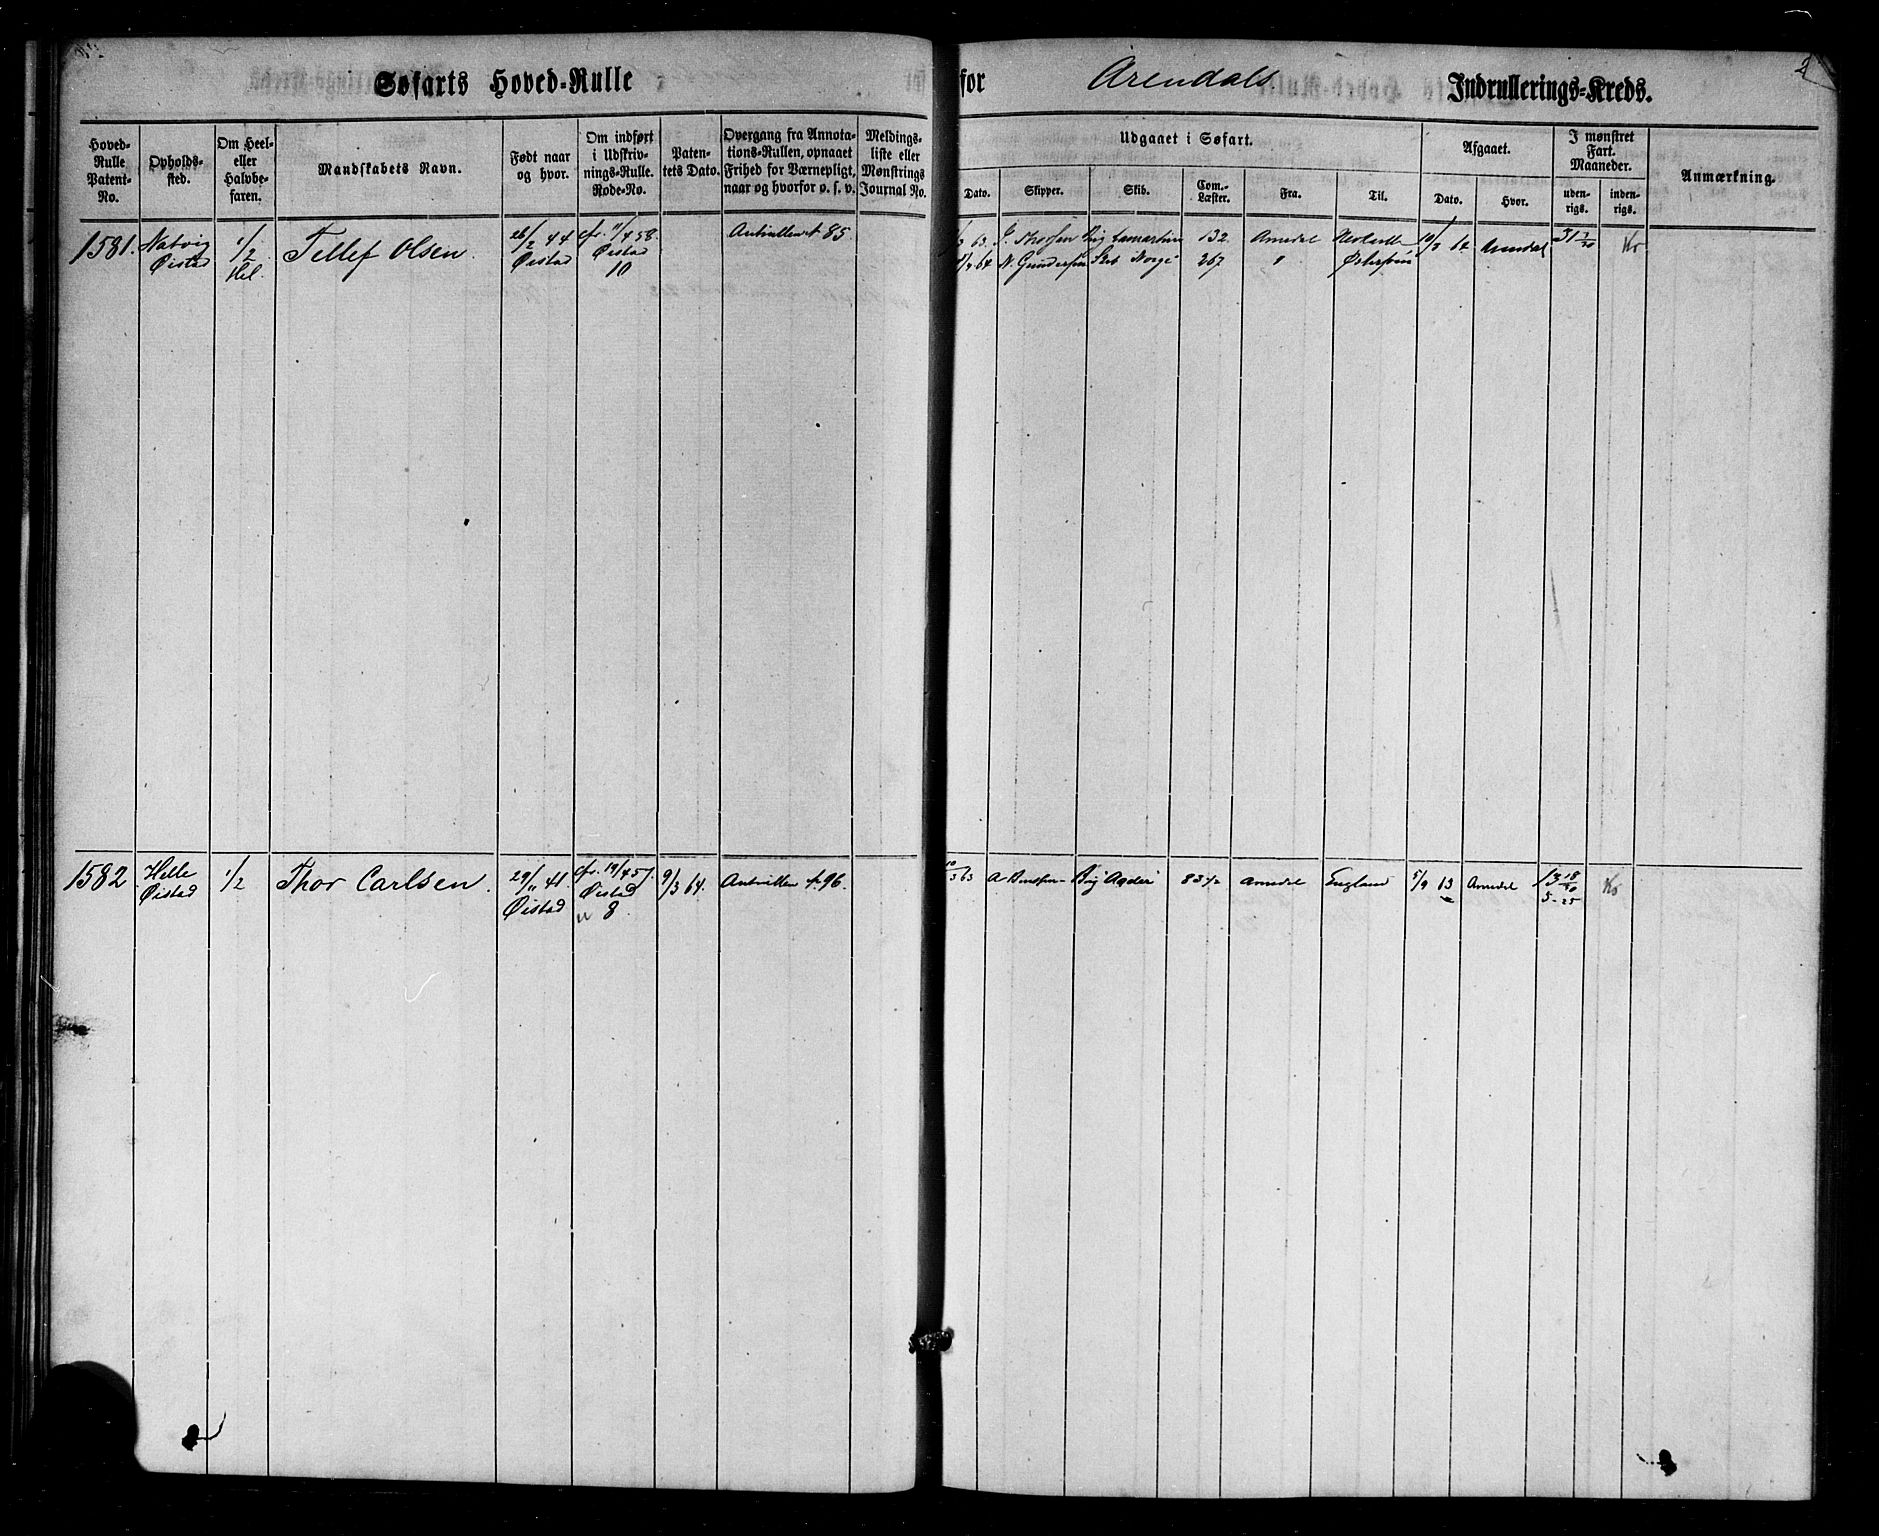 Søfarts Hoved-Rulle for Arendals Indrullerings-Kreds.
2
Hoved-
Rulle
Patent-
No.
Opholds-
sted.
Om Heel-
eller
Halvbe-
faren.
Mandskabets Navn.
Født naar
og hvor.
Om indført
i Udskriv-
nings-Rulle.
Rode-No.
Paten-
tets Dato.
Overgang fra Annota-
tions-Rullen, opnaaet
Frihed for Værnepligt,
naar og hvorfor o. s. v.
Meldings-
liste eller
Mønstrings
Journal No.
Udgaaet i Søfart.
Dato.
Skipper.
Skib.
Com.-
Læster.
Fra.
Til.
Afgaaet.
Dato.
Hvor.
I mønstret
Fart.
Maaneder.
uden-
rigs.
inden-
rigs.
Anmærkning.
1581.
Natvig
Øistad
1/2
Hel.
Tellef Olsen.
26/2 44
Øistad
11/4 58.
Øistad
10
85
63.
132
Arendal
64
N. Gundersen Skib Norge
267
"
64
Arendal
31
1582
Helle
Øistad
1/2
Thor Carlsen.
29/11 41.
Øistad
19/4 57.
Øistad
8
9/3 64.
96.
63
Brig Agder
83 1/2
Arendal
England
5/9 63
Arendal
13 18/30
5-25